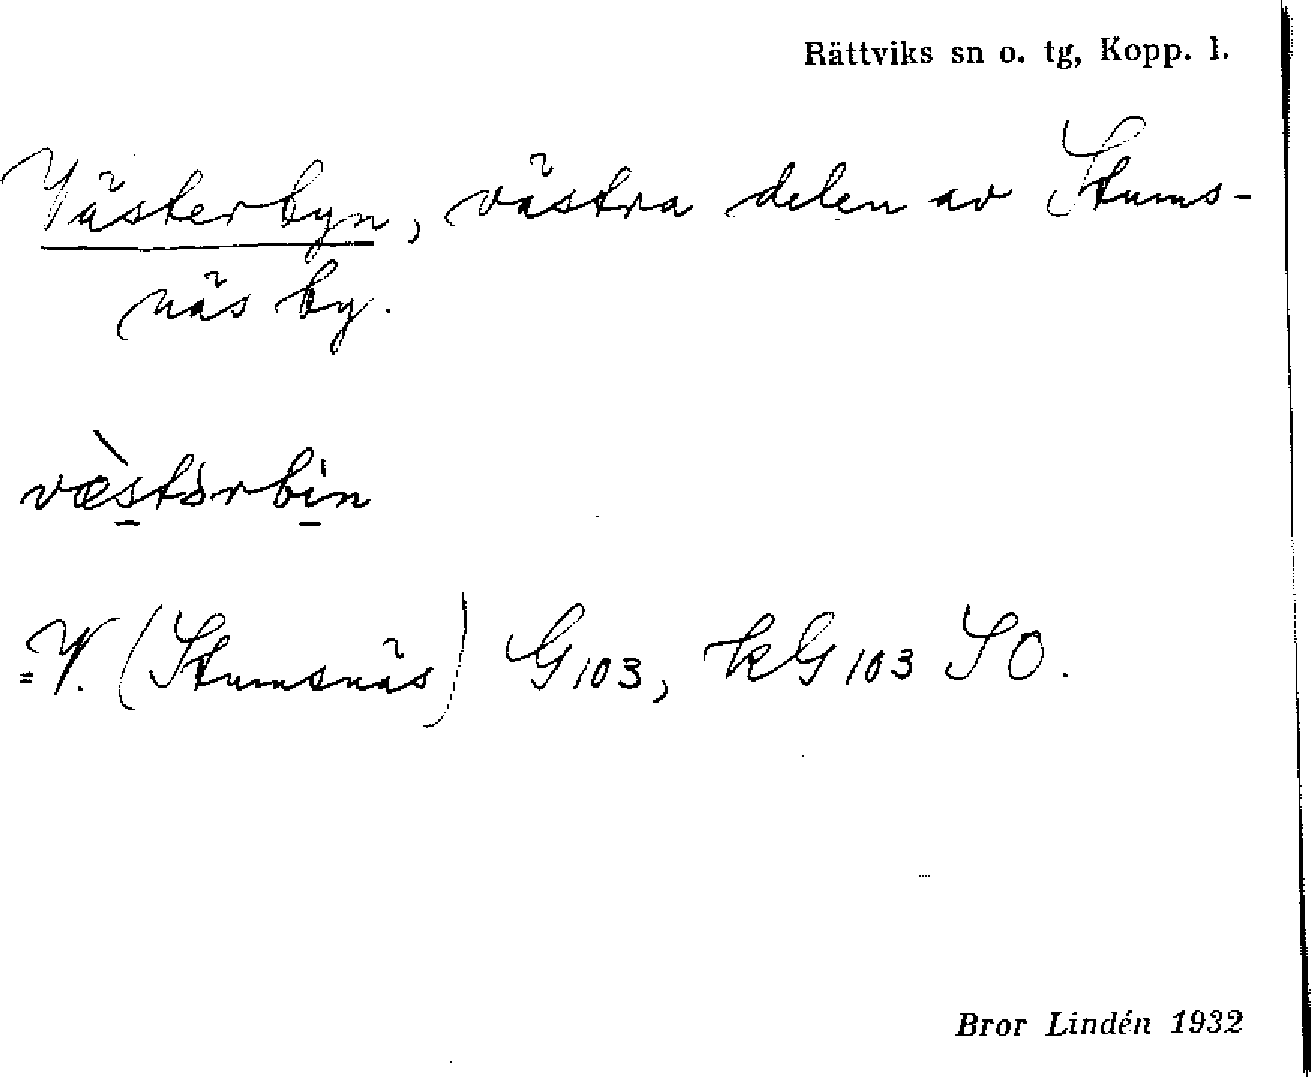 Rättviks sn o. tg, Kopp. l.
Västerbyn, västra delen av Stums-
näs by.
vὲstərbin
=V. (Stumsnäs) G103, kG103 SO.
Bror Lindén 1932